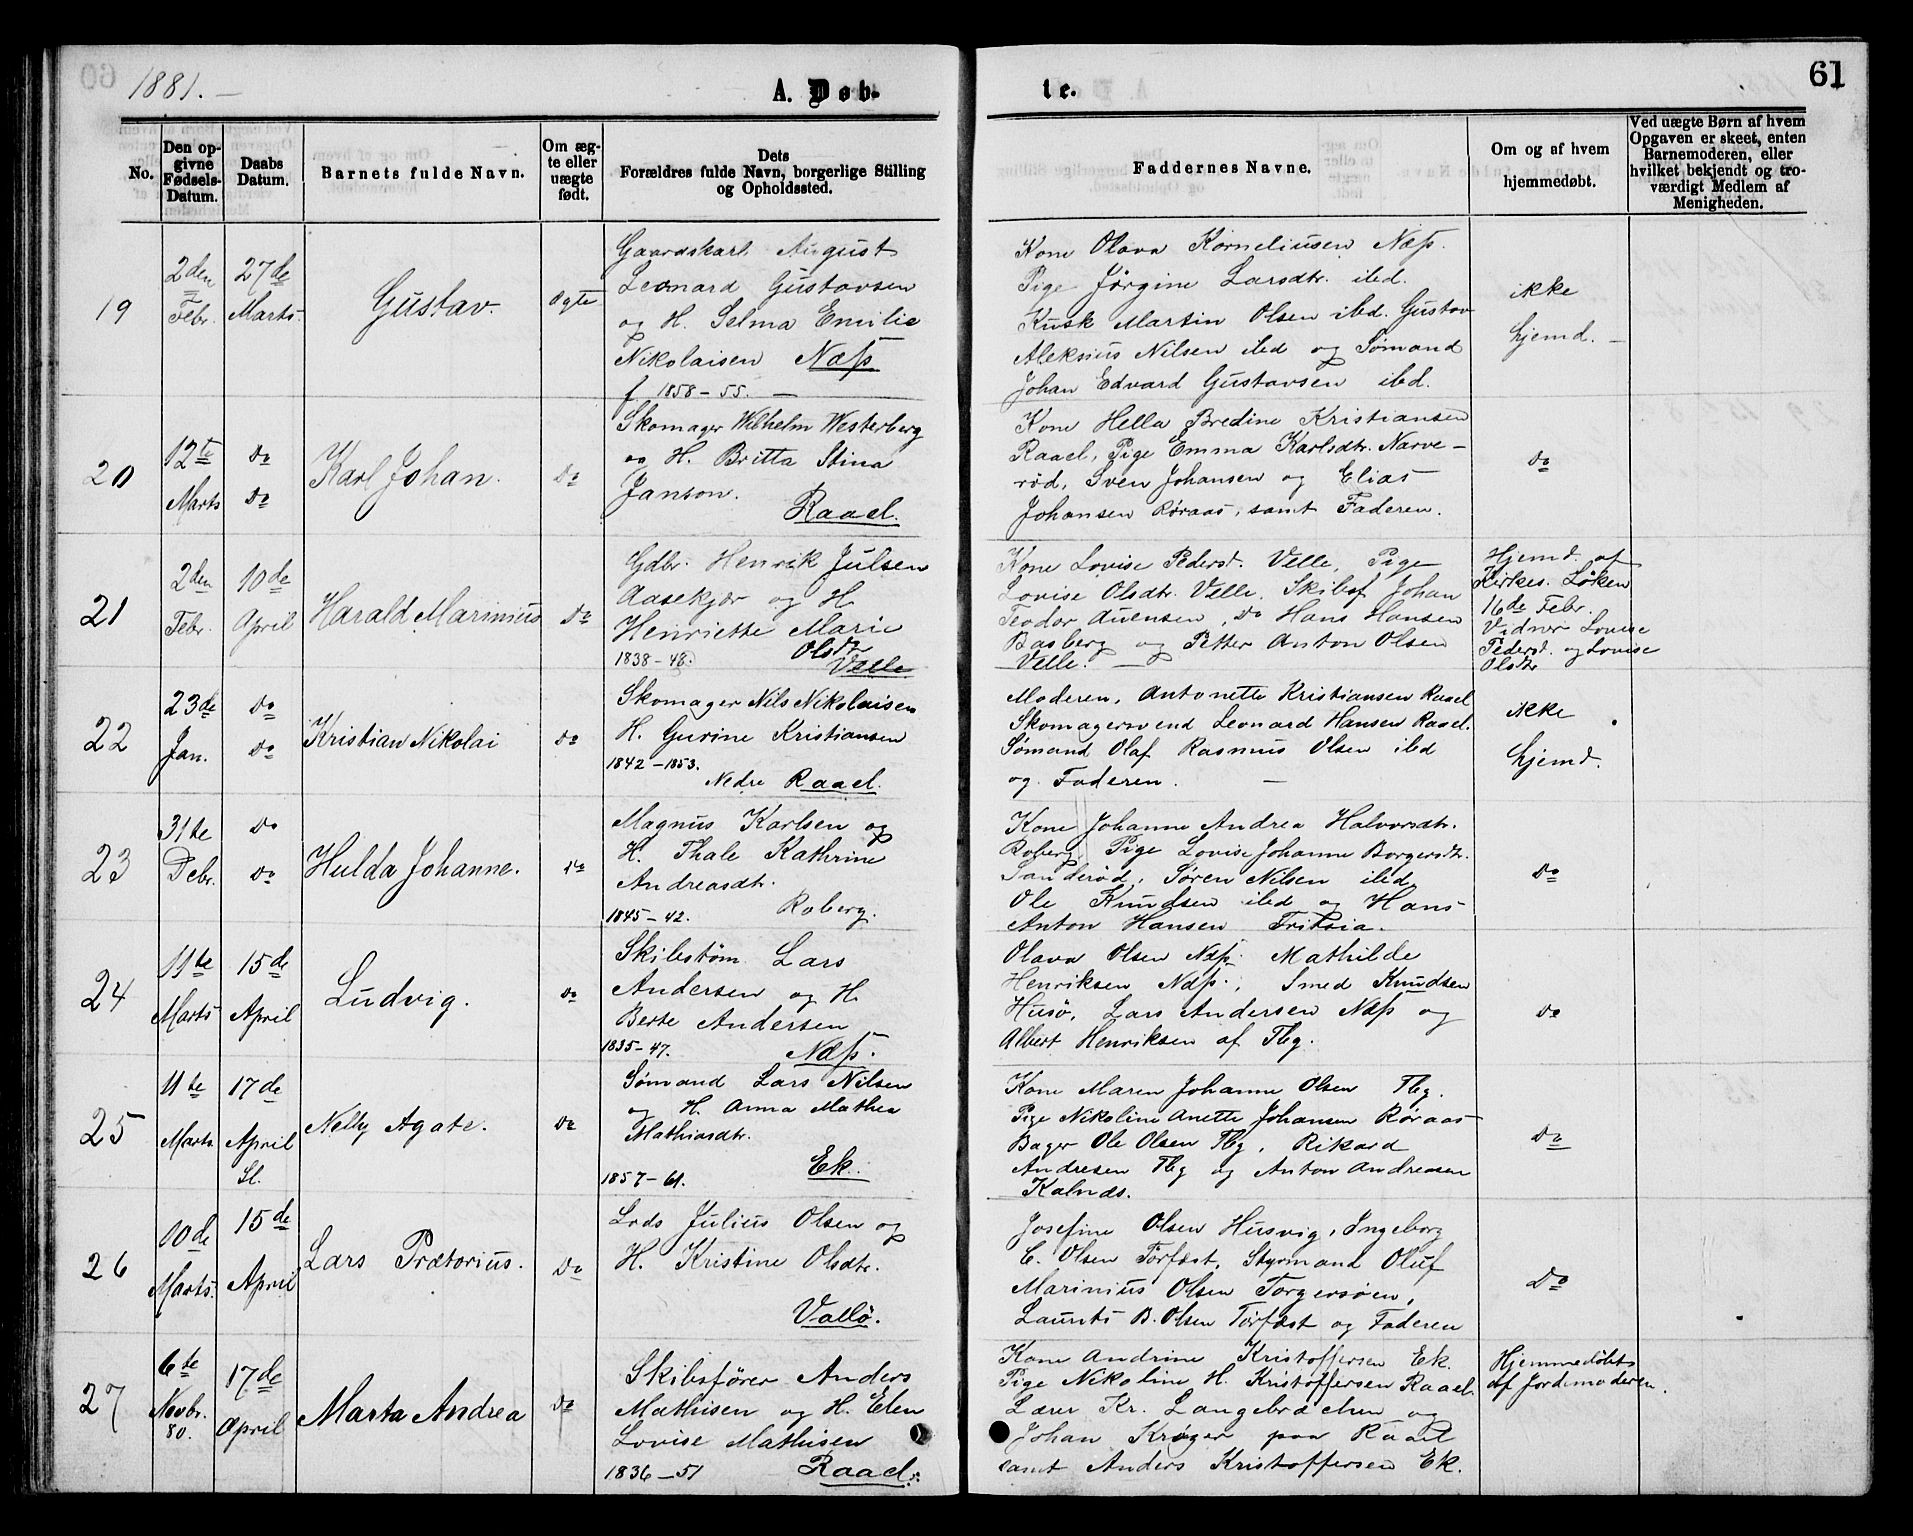 1881. –
A. Døb-
te.
61
No.
Den op-
givne
Fødsels-
Datum.
Daabs
Datum.
Barnets fulde Navn.
Om æg-
te eller
uægte
født.
Dets
Forældres fulde Navn, borgerlige Stilling
og Opholdssted.
Faddernes Navne.
Om og af hvem
hjemmedøbt.
Ved uægte Børn af hvem
Opgaven er skeet, enten
Barnemoderen, eller
hvilket bekjendt og tro-
værdigt Medlem af
Menigheden.
19
2den
Febr.
27de
Marts.
Gustav.
ægte
Gaardskarl August
Leonard Gustavsen
og H. Selma Emilie
Nikolaisen Næss
f 1858 – 55. –
Kone Olava Korneliusen Næss.
Pige Jørgine Larsdtr. ibd.
Kusk Martin Olsen ibd. Gustav
Aleksius Nilsen ibd og Sømand
Johan Edvard Gustavsen ibd.
ikke
hjemd. –
20
12te
Marts
Do
Do
Karl Johan.
Do
Skomager Wilhelm Westerberg
og H. Britta Stina
Janson.
Raael.
Kone Hella Bredine Kristiansen
Raael, Pige Emma Karlsdtr. Narve-
rød, Sven Johansen og Elias
Johansen Røraas, samt Faderen.
Do
21
2den
Febr.
10de
April
Harald Marinius
Do
Gdbr. Henrik Julsen
Aasekjær og H.
Henriette Marie
Olsdtr
1838 – 48.
Velle
Kone Lovise Pedersd. Velle, Pige
Lovise Olsdtr. Velle. Skibsf Johan
Teodor Auensen, Do Hans Hansen
Basberg og Petter Anton Olsen
Velle. –
Hjemd. af
Kirkes. Løken
16de Febr.
Vidner Lovise
Pedersd. og Lovise
Olsdtr
22
23de
Jan.
Do
Do
Kristian Nikolai
Do
Skomager Nils Nikolaisen
H. Gurine Kristiansen
1842 – 1853.
Nedre Raael.
Moderen, Antonette Kristiansen Raael
Skomagersvend Leonard Hansen Raael.
Sømand Olaf Rasmus Olsen ibd
og Faderen. –
ikke
hjemd.
23
31te
Debr.
Do
Do
Hulda Johanne.
Do
Magnus Karlsen og
H. Thale Kathrine
Andreasdtr.
1845 – 42.
Roberg.
Kone Johanne Andrea Halvorsdtr.
Roberg, Pige Lovise Johanne Borgersdtr.
Sanderød, Søren Nilsen ibd,
Ole Knudsen ibd og Hans
Anton Hansen
Do
24
11te
Marts
15de
April
Ludvig.
Do
Skibstøm. Lars
Andersen og H.
Berte Andersen
1835 – 47.
Næss.
Olava Olsen Næss. Mathilde
Henriksen Næss., Smed Knudsen
Husø, Lars Andersen Næss og
Albert Henriksen af Tbg.
Do
25
11te
Marts
17de
April
Sl.
Nelly Agate.
Do
Sømand Lars Nilsen
og H. Anna Mathea
Mathiasdtr.
1857 – 61.
Ek.
Kone Maren Johanne Olsen Tbg.
Pige Nikoline Anette Johansen Røraas
Bager Ole Olsen Tbg, Rikard
Andresen Tbg og Anton Andreasen
Kalnæs.
Do
26
10de
Marts.
15de
April
Lars Prætorius.
Do
Lods Julius Olsen og
H. Kristine Olsdtr.
Vallø.
Josefine Olsen Husvig, Ingeborg
C. Olsen Torfæst, Styrmand Oluf
Marinius Olsen Torgersøen,
Laurits B. Olsen Torfæst og Faderen
Do
27
6te
Novbr.
80.
17de
April
Marta Andrea
Do
Skibsfører Anders
Mathisen og H. Elen
Lovise Mathisen
1836 – 51
Raael.
Kone Andrine Kristoffersen Ek.
Pige Nikoline H. Kristoffersen Raael.
Lærer Kr. Langebrækhen og
Johan Krøger paa Raael
samt Anders Kristoffersen Ek.
Hjemmedøbt
af Jordemoderen.